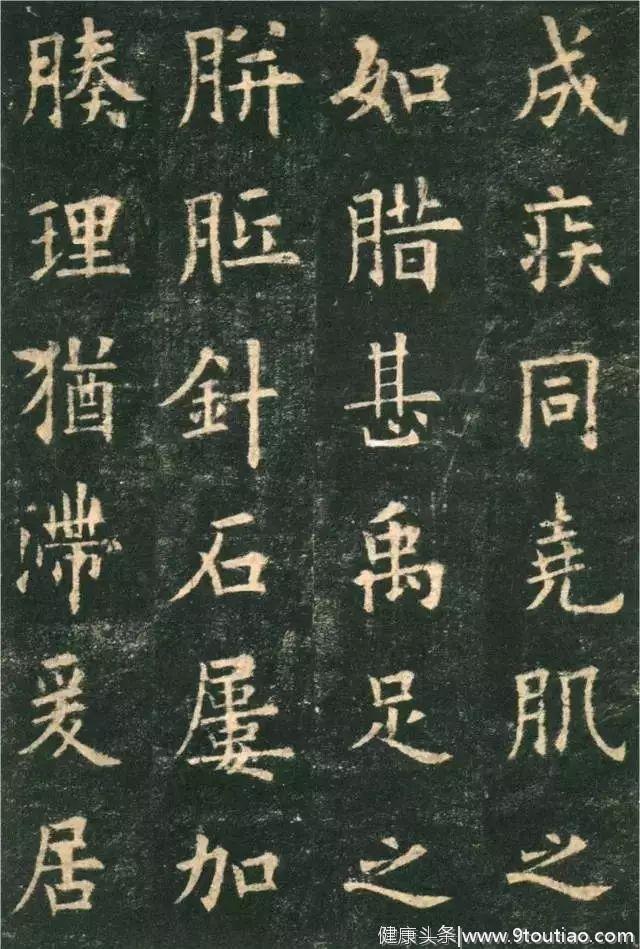 成疾同堯肌之
如腊甚禹足之
胼胝針石屢加
腠理猶滯爰居
健康头条|www.9toutiao.com